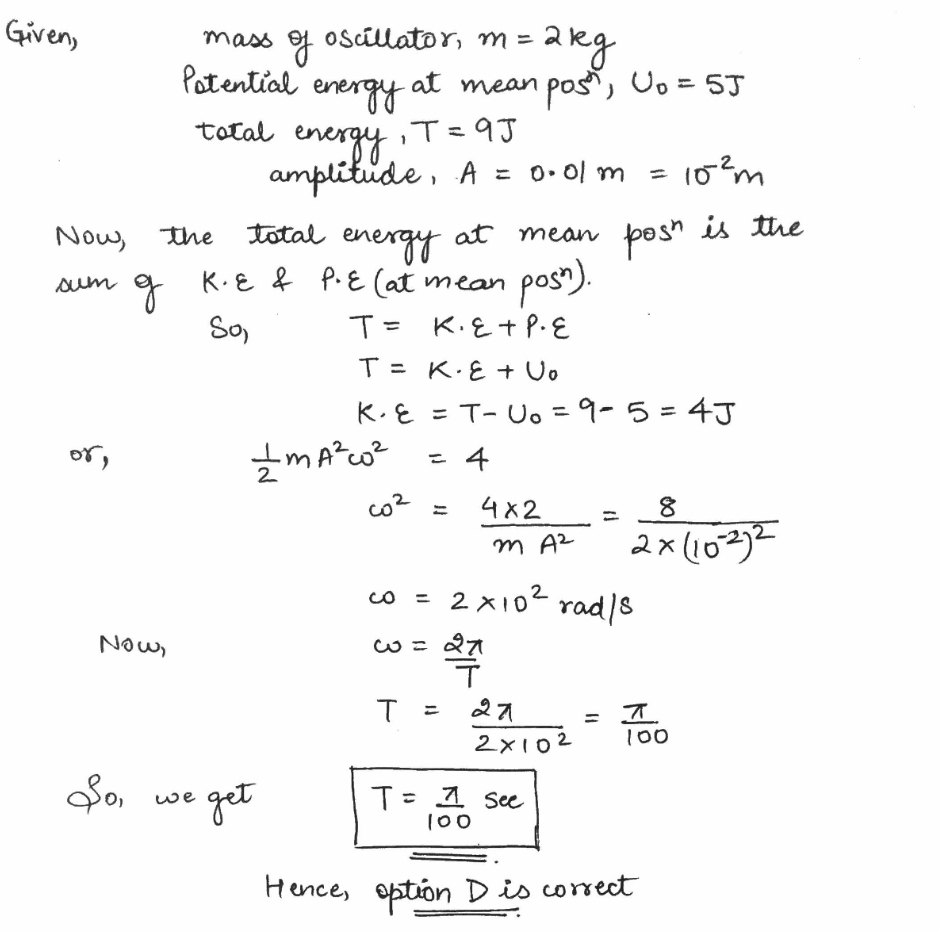 Given, mass of oscillator, m = 2kg
Potential energy at mean posⁿ, U₀ = 5J
total energy, T = 9J
amplitude, A = 0.01 m = 10⁻²m
Now, the total energy at mean posⁿ is the
sum of K.E & P.E (at mean posⁿ).
So, T = K.E + P.E
T = K.E + U₀
K.E = T - U₀ = 9 - 5 = 4J
or, 1/2 m A²ω² = 4
ω² = 4×2 / m A² = 8 / 2×(10⁻²)²
ω = 2×10² rad/s
Now, ω = 2π / T
T = 2π / 2×10² = π / 100
So, we get T = π / 100 sec
Hence, option D is correct